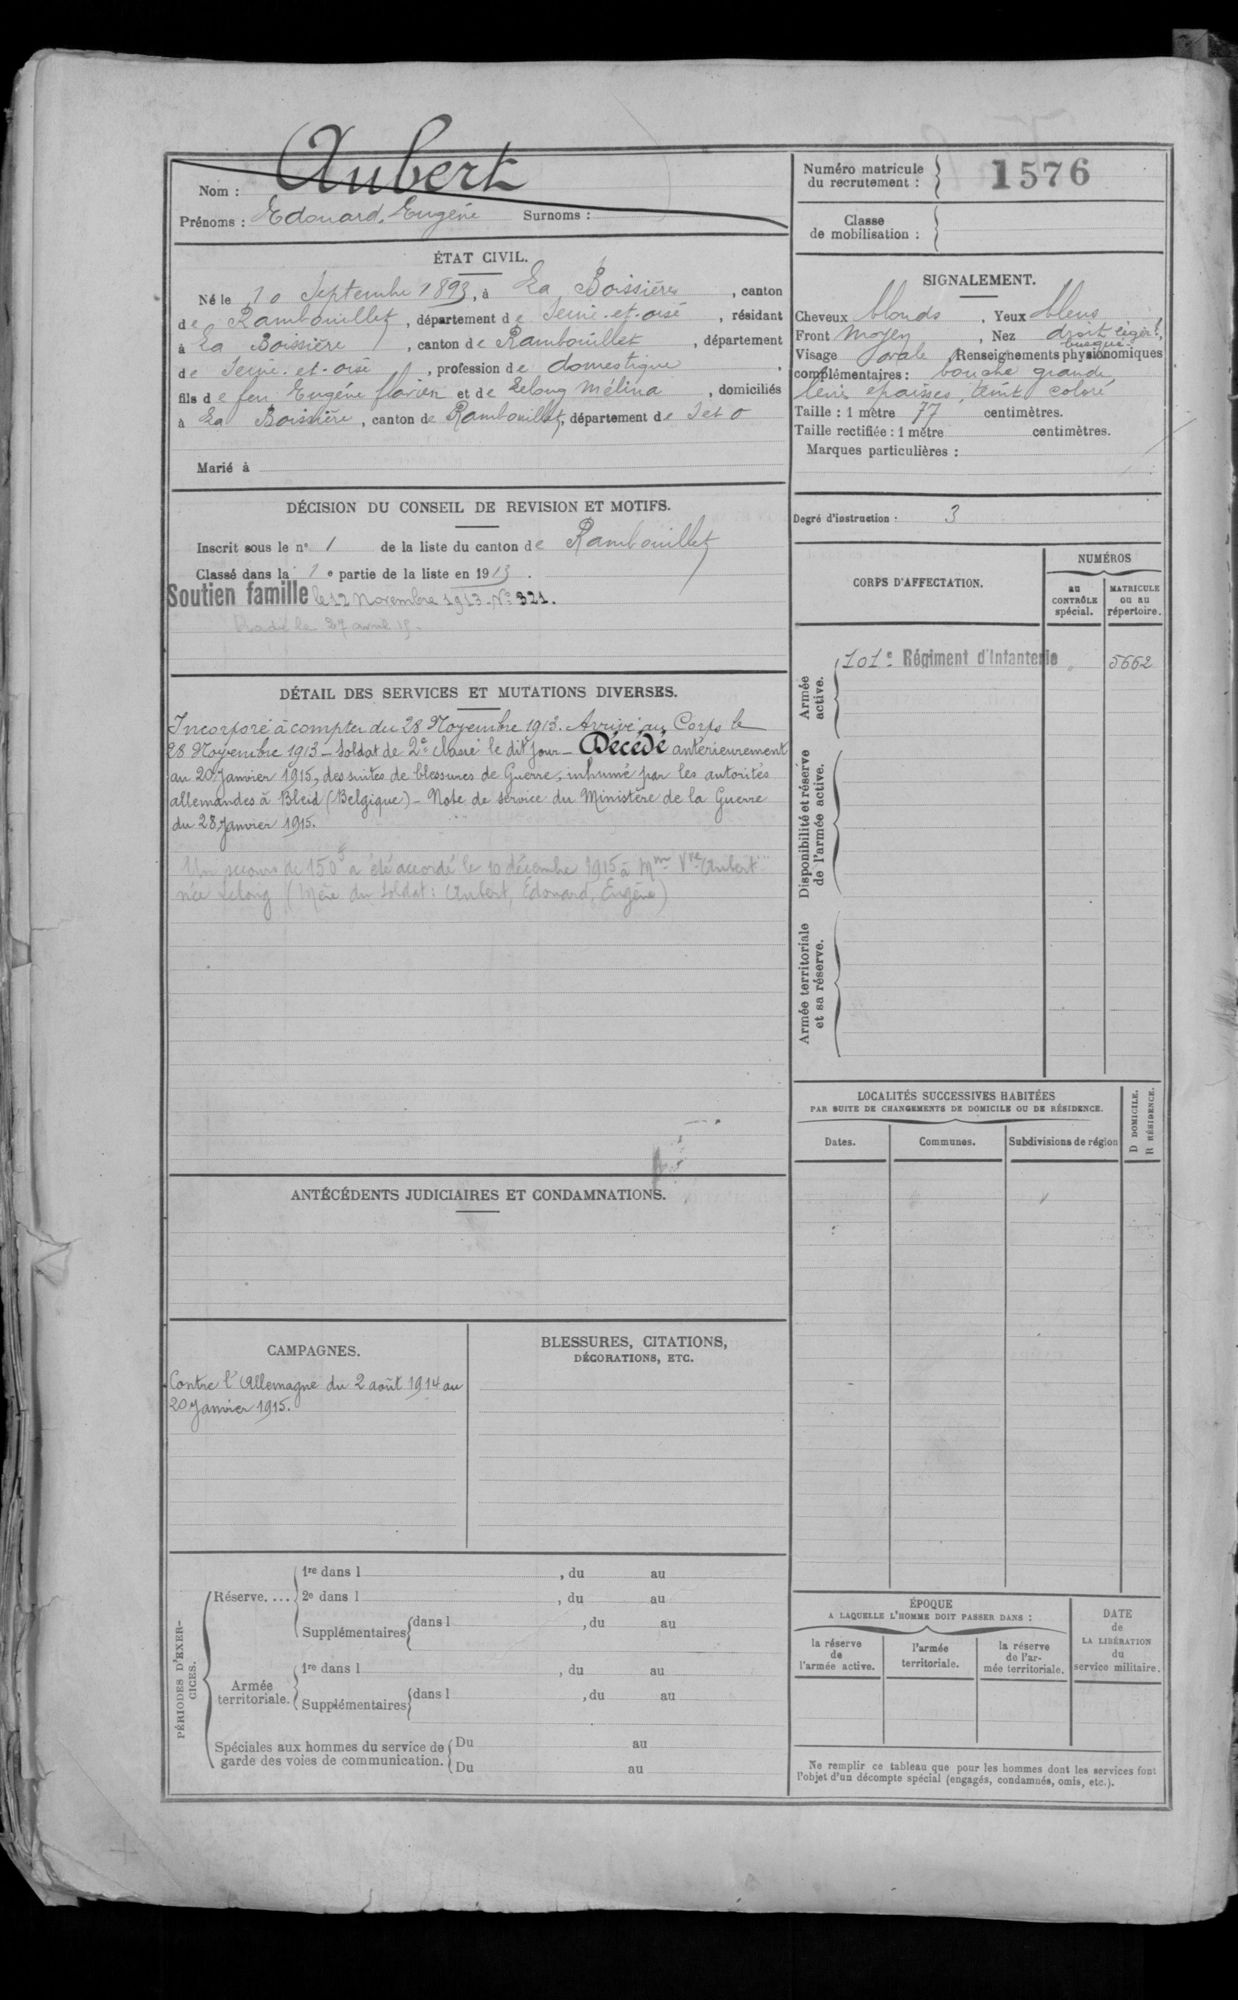 Nom : Aubert
Prénoms : Edouard, Eugène Surnoms :
ÉTAT CIVIL.
Né le 10 Septembre 1893, à La Boissière, canton
de Rambouillet, département de Seine-et-oise, résidant
à La Boissière, canton de Rambouillet, département
de Seine-et-oise, profession de domestique,
fils de feu Eugène florien et de Lelong Mélina, domiciliés
à La Boissière, canton de Rambouillet, département de S et O
Marié à
DÉCISION DU CONSEIL DE REVISION ET MOTIFS.
Inscrit sous le n° 1 de la liste du canton de Rambouillet
Classé dans la 1e partie de la liste en 1913.
Soutien famille le 12 Novembre 1913. N° 321.
Radié le 27 avril 15.
DÉTAIL DES SERVICES ET MUTATIONS DIVERSES.
Incorporé à compter du 28 Novembre 1913. Arrivé au Corps le
28 Novembre 1913 – Soldat de 2e classe le dit jour – Décédé antérieurement
au 20 Janvier 1915, des suites de blessures de Guerre, inhumé par les autorités
allemandes à Bleid (Belgique) – Note de service du Ministère de la Guerre
du 28 Janvier 1915.
Un secours de 150 f a été accordé le 10 décembre 1915 à Mme Vve Aubert
née Lelong (Mère du soldat : Aubert, Edouard, Eugène)
ANTÉCÉDENTS JUDICIAIRES ET CONDAMNATIONS.
CAMPAGNES.
Contre l'Allemagne du 2 août 1914 au
20 Janvier 1915.
BLESSURES, CITATIONS,
DÉCORATIONS, ETC.
PÉRIODES D'EXER-
CICES.
Réserve....
1re dans l , du au
2e dans l , du au
Supplémentaires dans l , du au
Armée
territoriale.
1re dans l , du au
Supplémentaires dans l , du au
Spéciales aux hommes du service de
garde des voies de communication.
Du au
Du au
Numéro matricule
du recrutement : 1576
Classe
de mobilisation :
SIGNALEMENT.
Cheveux blonds, Yeux bleus
Front moyen, Nez droit légèrt
busqué.
Visage ovale, Renseignements physionomiques
complémentaires : bouche grande
lèvres épaisses, teint coloré
Taille : 1 mètre 77 centimètres.
Taille rectifiée : 1 mètre centimètres.
Marques particulières :
Degré d'instruction : 3
CORPS D'AFFECTATION.
NUMÉROS
au
CONTRÔLE
spécial.
MATRICULE
ou au
répertoire.
Armée
active.
101e Régiment d'Infanterie 5662
Disponibilité et réserve
de l'armée active.
Armée territoriale
et sa réserve.
LOCALITÉS SUCCESSIVES HABITÉES
PAR SUITE DE CHANGEMENTS DE DOMICILE OU DE RÉSIDENCE.
Dates. Communes. Subdivisions de région
D DOMICILE.
R RÉSIDENCE.
ÉPOQUE
A LAQUELLE L'HOMME DOIT PASSER DANS :
la réserve
de
l'armée active.
l'armée
territoriale.
la réserve
de l'ar-
mée territoriale.
DATE
de
LA LIBÉRATION
du
service militaire.
Ne remplir ce tableau que pour les hommes dont les services font
l'objet d'un décompte spécial (engagés, condamnés, omis, etc.).